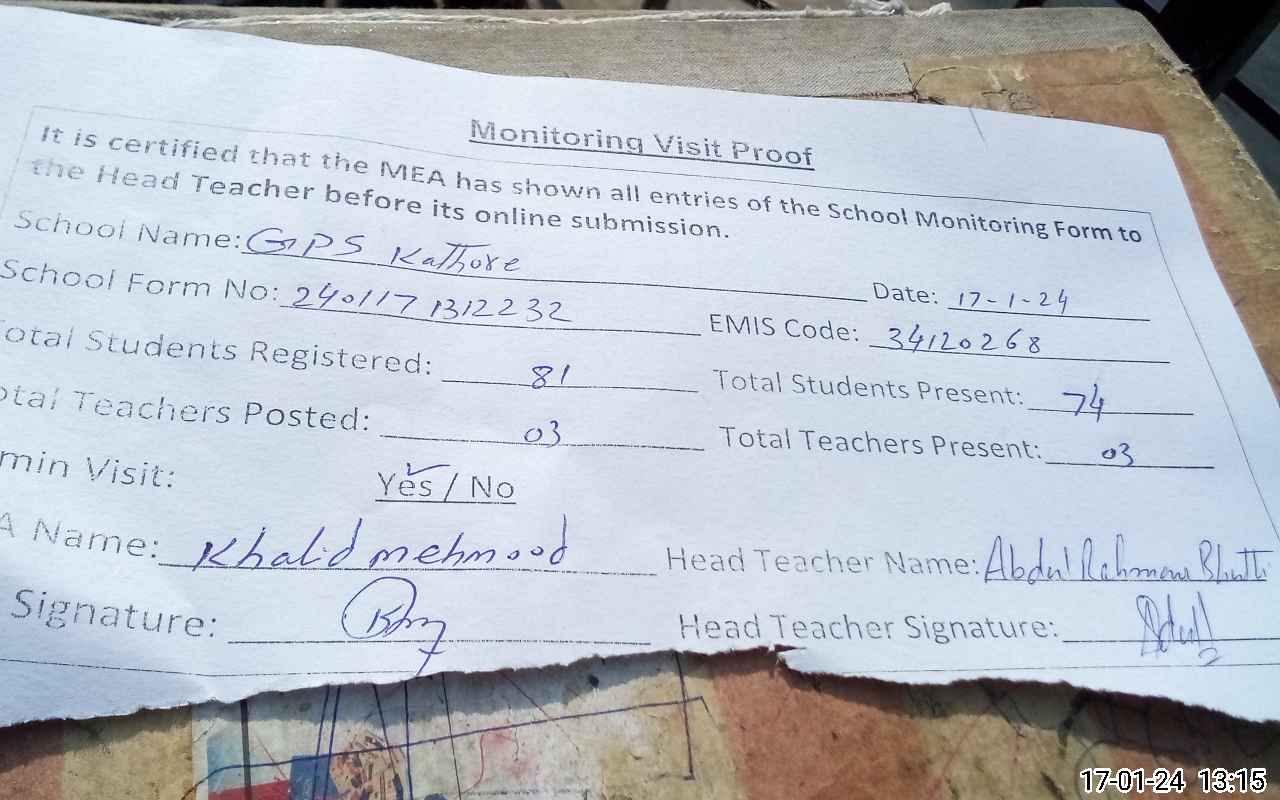 Monitoring Visit Proof
It is certified that the MEA has shown all entries of the School Monitoring Form to
the Head Teacher before its online submission.
School Name: GPS Kathore
Date: 17-1-24
School Form No: 2401171312232
EMIS Code: 34120268
otal Students Registered: 81
Total Students Present: 74
otal Teachers Posted: 03
Total Teachers Present: 03
min Visit: Yes / No
A Name: Khalid mehmood
Head Teacher Name: Abdul Rahman Bhatti
Signature:
Head Teacher Signature: Abdul
17-01-24 13:15